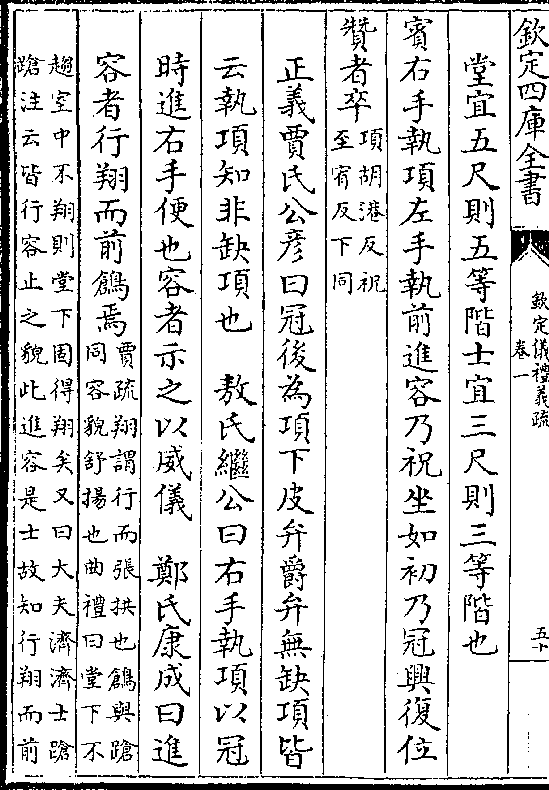 欽定四庫全書
欽定儀禮義疏
卷一
五十
堂宜五尺則五等階士宜三尺則三等階也
賓右手執項左手執前進容乃祝坐如初乃冠興復位
贊者卒
項胡港反祝
至宥反下同
正義賈氏公彥曰冠後為項下皮弁爵弁無缺項皆
云執項知非缺項也 敖氏繼公曰右手執項以冠
時進右手便也容者示之以威儀 鄭氏康成曰進
容者行翔而前鶬焉
賈疏翔謂行而張拱也鶬與蹌
同容貌舒揚也曲禮曰堂下不
趨室中不翔則堂下固得翔矣又曰大夫濟濟士蹌
蹌注云皆行容止之貌此進容是士故知行翔而前